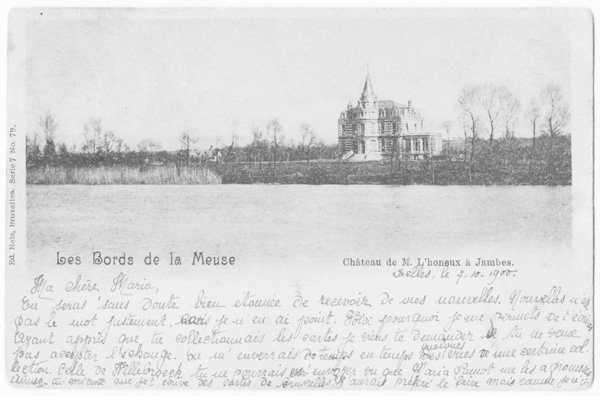 Ed. Nels, Bruxelles. Serie 7 No. 79.
Les Bords de la Meuse
Château de M. L'honeux à Jambes.
Ixelles, le 7-10-1900.
Ma chère Maria,
Tu seras sans doute bien étonnée de recevoir de mes nouvelles. Nouvelles n'est
pas le mot justement, car je n'en ai point. Voici pourquoi je me permets de t'écrire
Ayant appris que tu collectionnais les cartes je viens te demander si tu ne veux
pas accepter l'échange. Tu m'enverrais de temps en temps quelques vues de une certaine col
lection. Celle de Willebroeck tu ne pourrais m'envoyer vu que Maria me les a promises
aimes tu mieux que je t'envoie des cartes de Bruxelles. J'aurais préféré le faire mais comme je